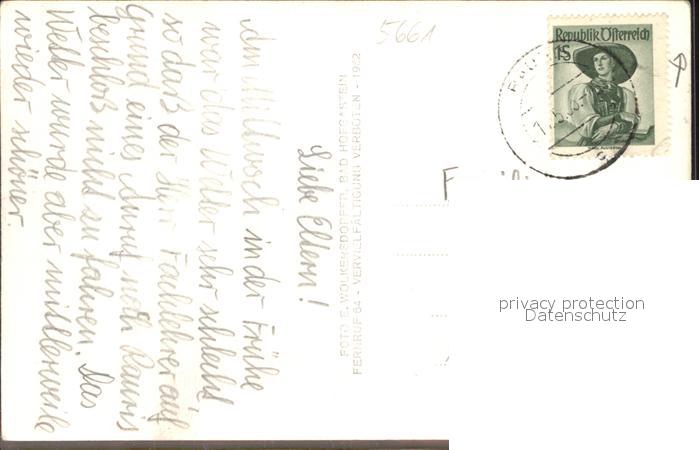 5661
Republik Österreich
1S
Liebe Eltern!
Am Mittwoch in der Frühe
war das Wetter sehr schlecht
so daß der Herr Fachlehrer auf
Grund eines Anruf nach Rauris
beschloß nicht zu fahren. Das
Wetter wurde aber mittlerweile
wieder schöner.
FOTO E. WOLKERSDORFER, BAD HOFGASTEIN
FERNRUF 64 - VERVIELFÄLTIGUNG VERBOTEN - 1952
privacy protection
Datenschutz